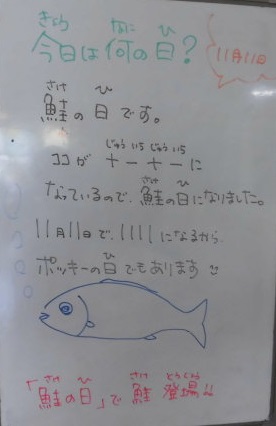 きょう なに ひ
今日は何の日?
11月11日
さけ ひ
鮭の日です。
じゅう いち じゅう いち
ココが 十一十一に
さけ ひ
なっているので、鮭の日になりました。
11月11日で、1111になるから
ひ
ポッキーの日でもあります
さけ ひ さけ とうじょう
「鮭の日」で鮭 登場!!